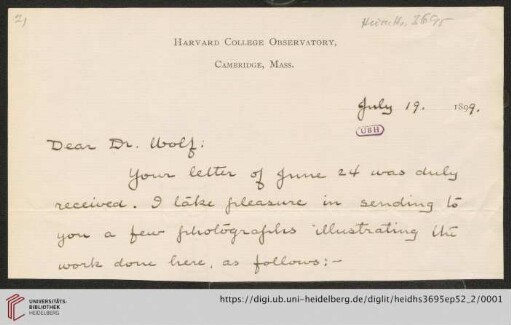 2)
3695
HARVARD COLLEGE OBSERVATORY,
CAMBRIDGE, MASS.
July 19. 1899.
UBH
Dear Dr. Wolf:
Your letter of June 24 was duly
received. I take pleasure in sending to
you a few photographs illustrating the
work done here, as follows:-
UNIVERSITÄTS-
BIBLIOTHEK
HEIDELBERG
https://digi.ub.uni-heidelberg.de/diglit/heidhs3695ep52_2/0001